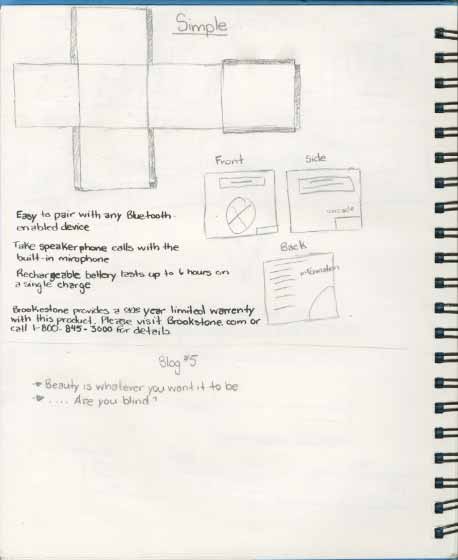 Simple
Front
Side
Easy to pair with any Bluetooth-
enabled device
Take speakerphone calls with the
built-in mirophone
Rechargeable battery lasts up to 6 hours on
a single charge
Back
information
Brookestone provides a one year limited warrenty
with this product. Please visit Brookstone.com or
call 1-800-845-3000 for details
Blog #5
Beauty is whatever you want it to be
.... Are you blind?